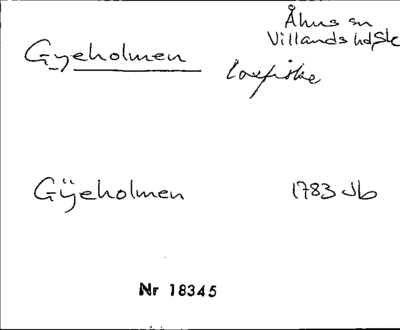 Åhus sn
Villands hd, Sk
Gyeholmen
laxfiske
Gÿeholmen 1783 Jb
Nr 18345